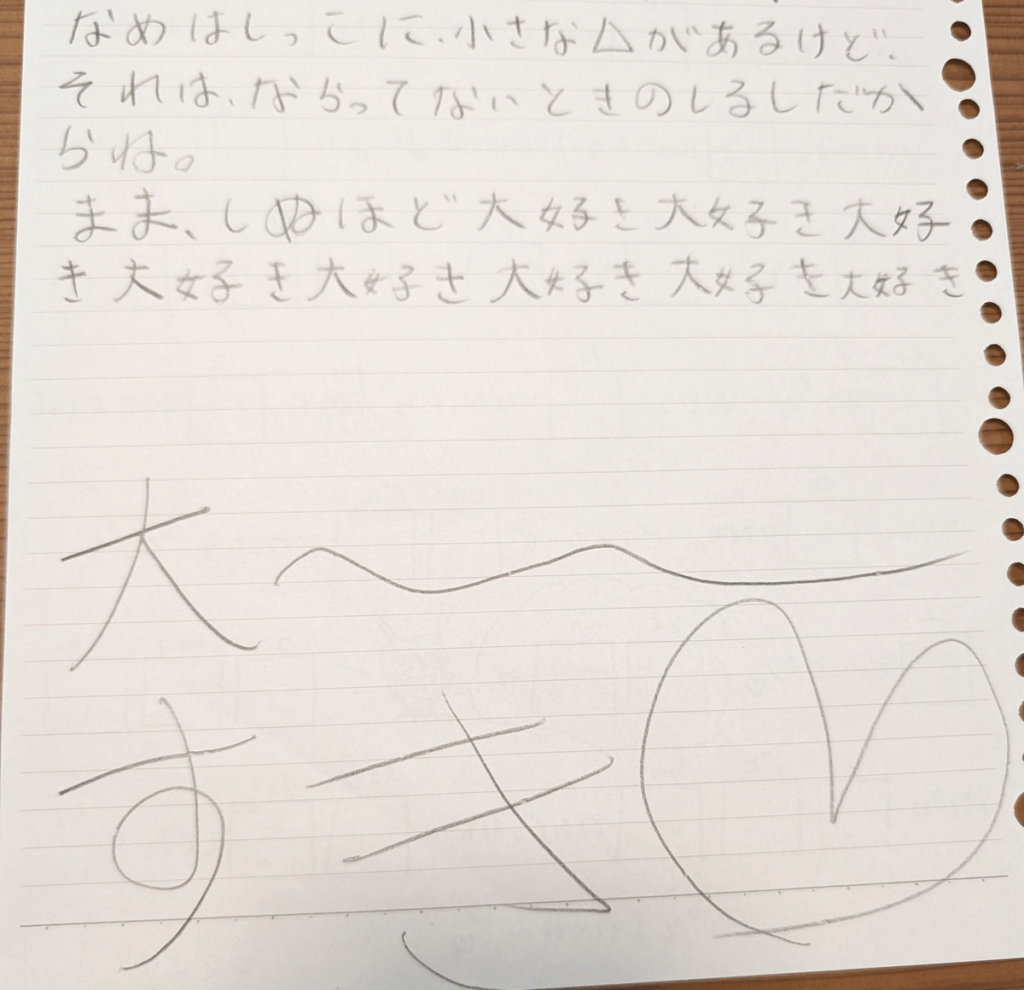 なめはしっこに、小さな△があるけど、
それは、ならってないときのしるしだか
らね。
まま、しぬほど大好き大好き大好
き大好き大好き大好き大好き大好き
大〜
すき♡